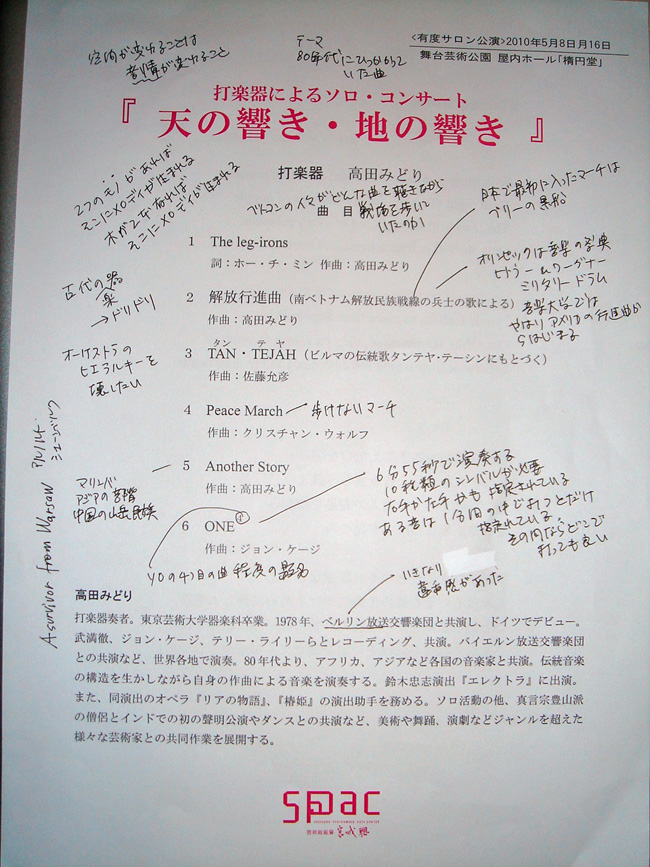 <有度サロン公演>2010年5月8日,月16日
舞台芸術公園 屋内ホール「楕円堂」
空間が変わることは
音が変わること
テーマ
80年代にひっかかって
いた曲
打楽器によるソロ・コンサート
『 天の響き・地の響き 』
打楽器 高田みどり
2つのモノがあれば
そこにメロディが生まれる
木が2本あれば
そこにメロディが生まれる
ベトコンの人々がどんな曲を聴きながら
戦場を歩いて
いたのか
曲目
日本で最初に入ったマーチは
ペリーの黒船
1 The leg-irons
詞：ホー・チ・ミン 作曲：高田みどり
音楽大学では
やはりアメリカの行進曲か
らはじまる
ミリタリードラム
古代の器
楽
→ドリドリ
2 解放行進曲（南ベトナム解放民族戦線の兵士の歌による）
作曲：高田みどり
オーケストラの
ヒエラルキーを
壊したい
タン テヤ
3 TAN・TEJAH（ビルマの伝統歌タンテヤ・テーシンにもとづく）
作曲：佐藤允彦
4 Peace March
歩けないマーチ
作曲：クリスチャン・ウォルフ
A survivor from Warsaw
マリンバ
アジアの音階
中国の山岳民族
5 Another Story
作曲：高田みどり
6分55秒で演奏する
10種類のシンバルが必要
右手か左手かも指定されている
ある音は1分間の中でおよそとだけ
指定されている
その間ならどこで
打っても良い
6 ONE4
作曲：ジョン・ケージ
の4つ目の曲 程度の題名
いきなり
違和感があった
高田みどり
打楽器奏者。東京芸術大学器楽科卒業。1978年、ベルリン放送交響楽団と共演し、ドイツでデビュー。
武満徹、ジョン・ケージ、テリー・ライリーらとレコーディング、共演。バイエルン放送交響楽団
との共演など、世界各地で演奏。80年代より、アフリカ、アジアなど各国の音楽家と共演。伝統音楽
の構造を生かしながら自身の作曲による音楽を演奏する。鈴木忠志演出『エレクトラ』に出演。
また、同演出のオペラ『リアの物語』、『椿姫』の演出助手を務める。ソロ活動の他、真言宗豊山派
の僧侶とインドでの初の聲明公演やダンスとの共演など、美術や舞踊、演劇などジャンルを超えた
様々な芸術家との共同作業を展開する。
spac
SHIZUOKA PERFORMING ARTS CENTER
芸術総監督 宮城聰